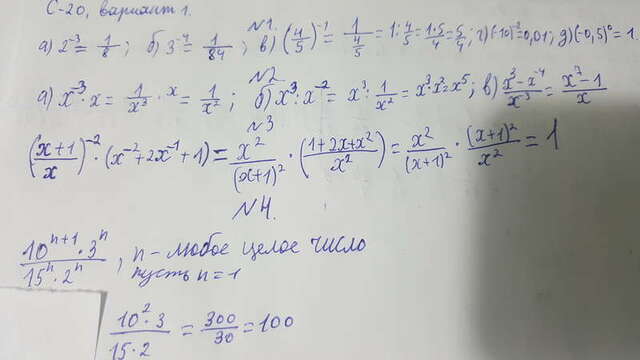 С-20, вариант 1.
№1.
а) 2⁻³ = 1/8; б) 3⁻⁴ = 1/84; в) (4/5)⁻¹ = 1/(4/5) = 1:4/5 = 1·5/4 = 5/4; г) (-10)⁻² = 0,01; д) (-0,5)⁰ = 1
№2
а) x⁻³·x = 1/x³·x = 1/x²; б) x³:x⁻² = x³:1/x² = x³·x² = x⁵; в) (x³-x⁻¹)/x³ = (x⁴-1)/x
№3
((x+1)/x)⁻²·(x⁻²+2x⁻¹+1) = x²/(x+1)²·((1+2x+x²)/x²) = x²/(x+1)²·(x+1)²/x² = 1
№4.
(10ⁿ⁺¹·3ⁿ)/(15ⁿ·2ⁿ), n - любое целое число
пусть n = 1
(10²·3)/(15·2) = 300/30 = 100